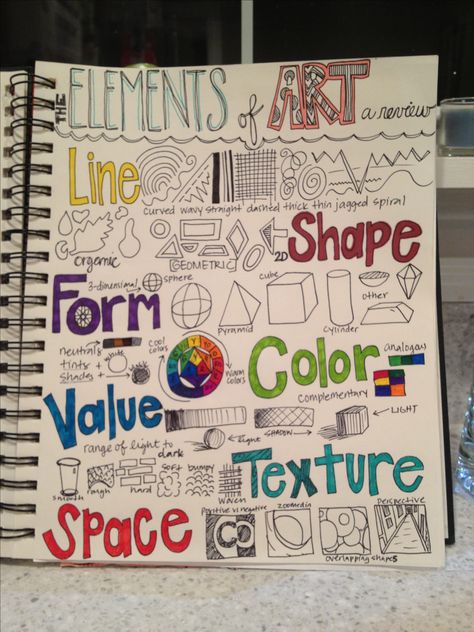 THE ELEMENTS of ART a review
Line
curved wavy straight dashed thick thin jagged spiral
organic
GEOMETRIC
2D
Shape
Form
3-dimensional
sphere
cube
other
pyramid
cylinder
neutrals
tints +
shades +
white
cool colors
warm colors
Color
analogous
complementary
Value
range of light to dark
light
SHADOW
LIGHT
smooth
rough
hard
soft
bumpy
woven
Texture
Space
Positive vs negative
zoomed in
overlapping shapes
perspective